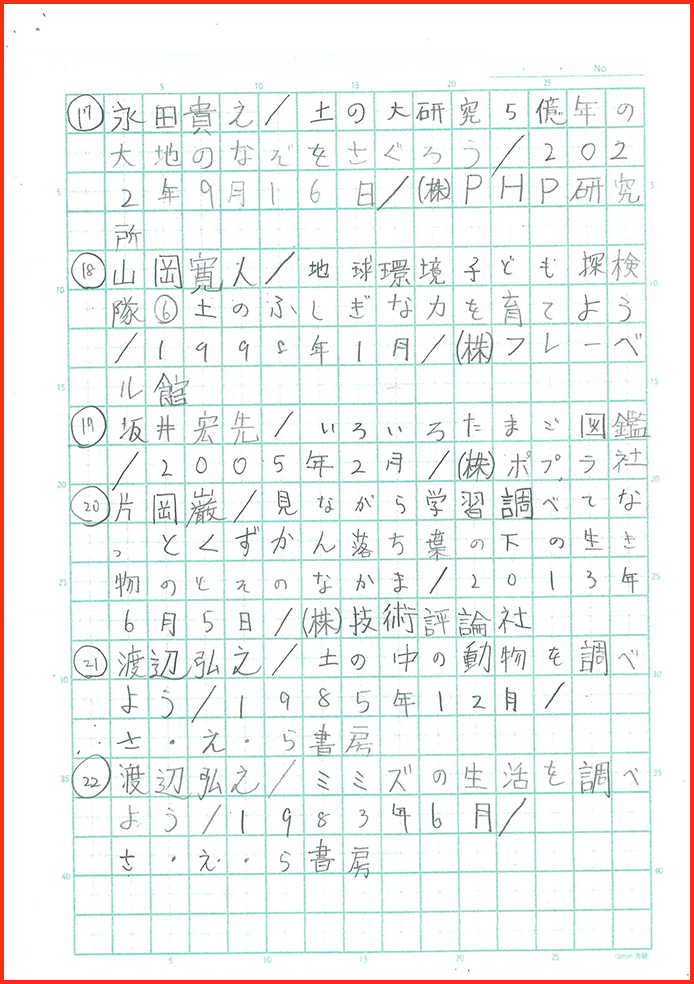 No.
5 10 15 20 25
⑰永田貴え/土の大研究5億年の
大地のなぞをさぐろう/202
2年9月16日/(株)PHP研究
所
⑱山岡寛人/地球環境子ども探検
隊⑥土のふしぎな力を育てよう
/1998年1月/(株)フレーベ
ル館
⑲坂井宏先/いろいろたまご図鑑
/2005年2月/(株)ポプラ社
⑳片岡巌/見ながら学習調べてな
っとくずかん落ち葉の下の生き
物のとそのなかま/2013年
6月5日/(株)技術評論社
㉑渡辺弘之/土の中の動物を調べ
よう/1985年12月/
さ・え・ら書房
㉒渡辺弘之/ミミズの生活を調べ
よう/1983年6月/
さ・え・ら書房
5 10 15 20 25